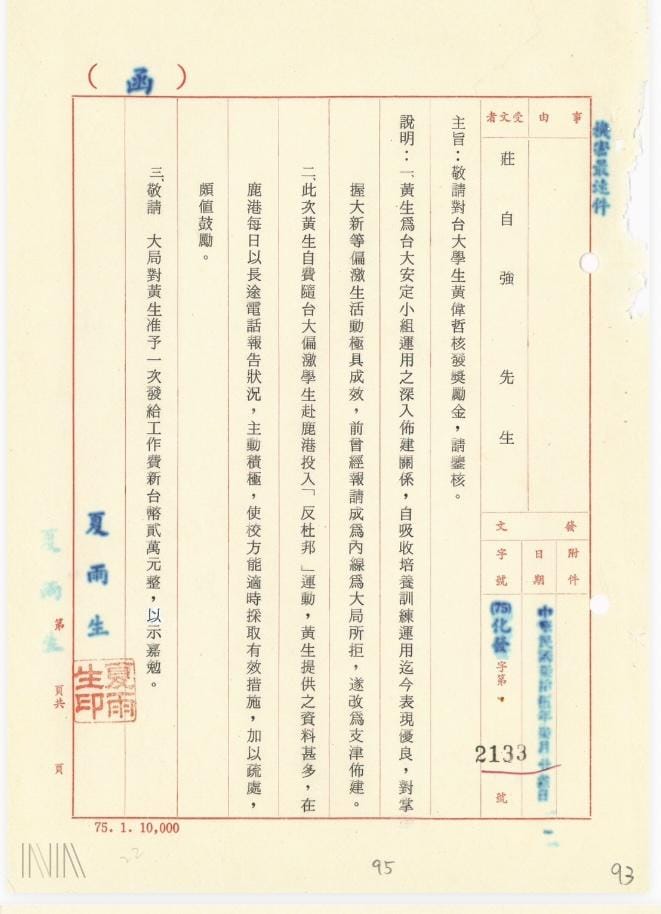 (函)
機密最速件
事由
受文者
莊自強先生
發文
附件
日期
字號
中華民國
(75)化發
字第
2133
號
主旨：敬請對台大學生黃偉哲核發獎勵金，請鑒核。
說明：一、黃生爲台大安定小組運用之深入佈建關係，自吸收培養訓練運用迄今表現優良，對掌
握大新等偏激生活動極具成效，前曾經報請成爲內線爲大局所拒，遂改爲支津佈建。
二、此次黃生自費隨台大偏激學生赴鹿港投入「反杜邦」運動，黃生提供之資料甚多，在
鹿港每日以長途電話報告狀況，主動積極，使校方能適時採取有效措施，加以疏處，
頗值鼓勵。
三、敬請　大局對黃生准予一次發給工作費新台幣貳萬元整，以示嘉勉。
夏雨生
夏雨生印
夏雨生
第
頁共
頁
75. 1. 10,000
22
95
93